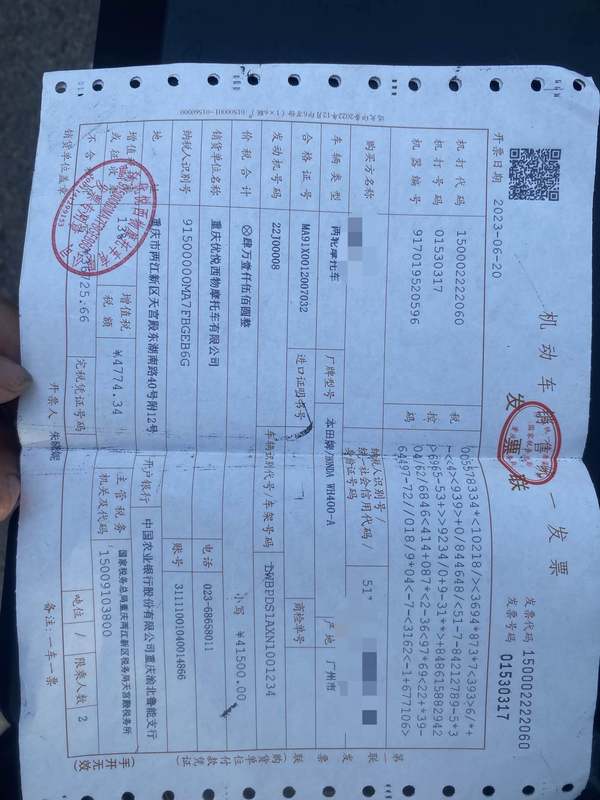 机动车销售统一发票
发票联
发票代码 150002222060
发票号码 01530317
开票日期 2023-06-20
机打代码 150002222060
机打号码 01530317
机器编号 917019520596
税控码
购买方名称
纳税人识别号/
统一社会信用代码/
身份证号码
51*
车辆类型 两轮摩托车 厂牌型号 本田牌/HONDA WH400-A 产地 广州市
合格证号 MA91X0012007032 进口证明书号 商检单号
发动机号码 22J00008 车辆识别代号/车架号码 LWBPDS1AXN1001234
价税合计 ⊗肆万壹仟伍佰圆整 小写 ¥41500.00
销货单位名称 重庆优悦西物摩托车有限公司 电话 023-68658011
纳税人识别号 91500000MA7FBGEB6G 账号 31111001040014866
地址 重庆市两江新区天宫殿东湖南路40号附12号 开户银行 中国农业银行股份有限公司重庆渝北鲁能支行
增值税税率
或征收率
13%
增值税
税额
¥4774.34
主管税务
机关及代码
国家税务总局重庆两江新区税务局天宫殿税务所
15009103800
不含
725.66 完税凭证号码 吨位 / 限乘人数 2
销货单位盖章 开票人 备注:一车一票
第一联 发票联 (购货单位付款凭证)
(手开无效)